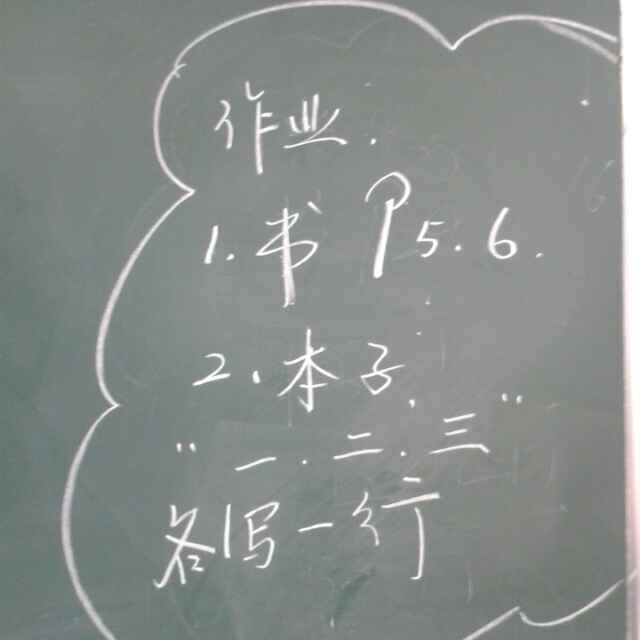 作业.
1.书 P5.6.
2.本子.
“一.二.三”
各写一行